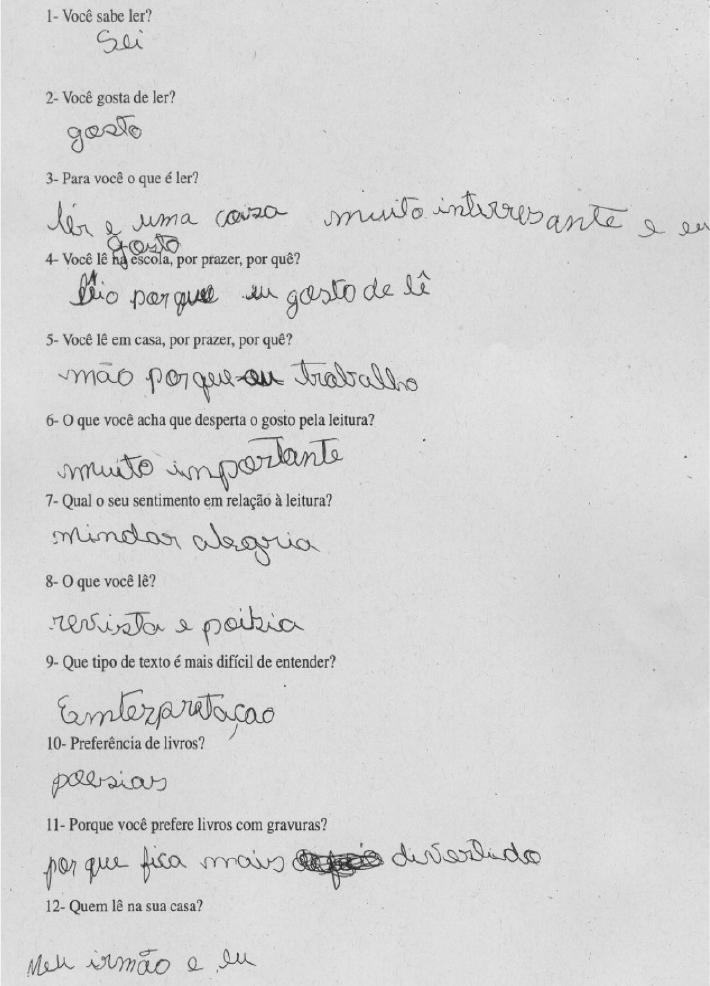 1- Você sabe ler?
Sei
2- Você gosta de ler?
gosto
3- Para você o que é ler?
lêr e uma coiza muito interresante e eu
gosto
4- Você lê na escola, por prazer, por quê?
leio porque eu gosto de lê
5- Você lê em casa, por prazer, por quê?
não porque eu trabalho
6- O que você acha que desperta o gosto pela leitura?
muito importante
7- Qual o seu sentimento em relação à leitura?
mindar alegria
8- O que você lê?
revista e poitzia
9- Que tipo de texto é mais difícil de entender?
Enterpretaçao
10- Preferência de livros?
poesias
11- Porque você prefere livros com gravuras?
por que fica mais divertido
12- Quem lê na sua casa?
Meu irmão e eu